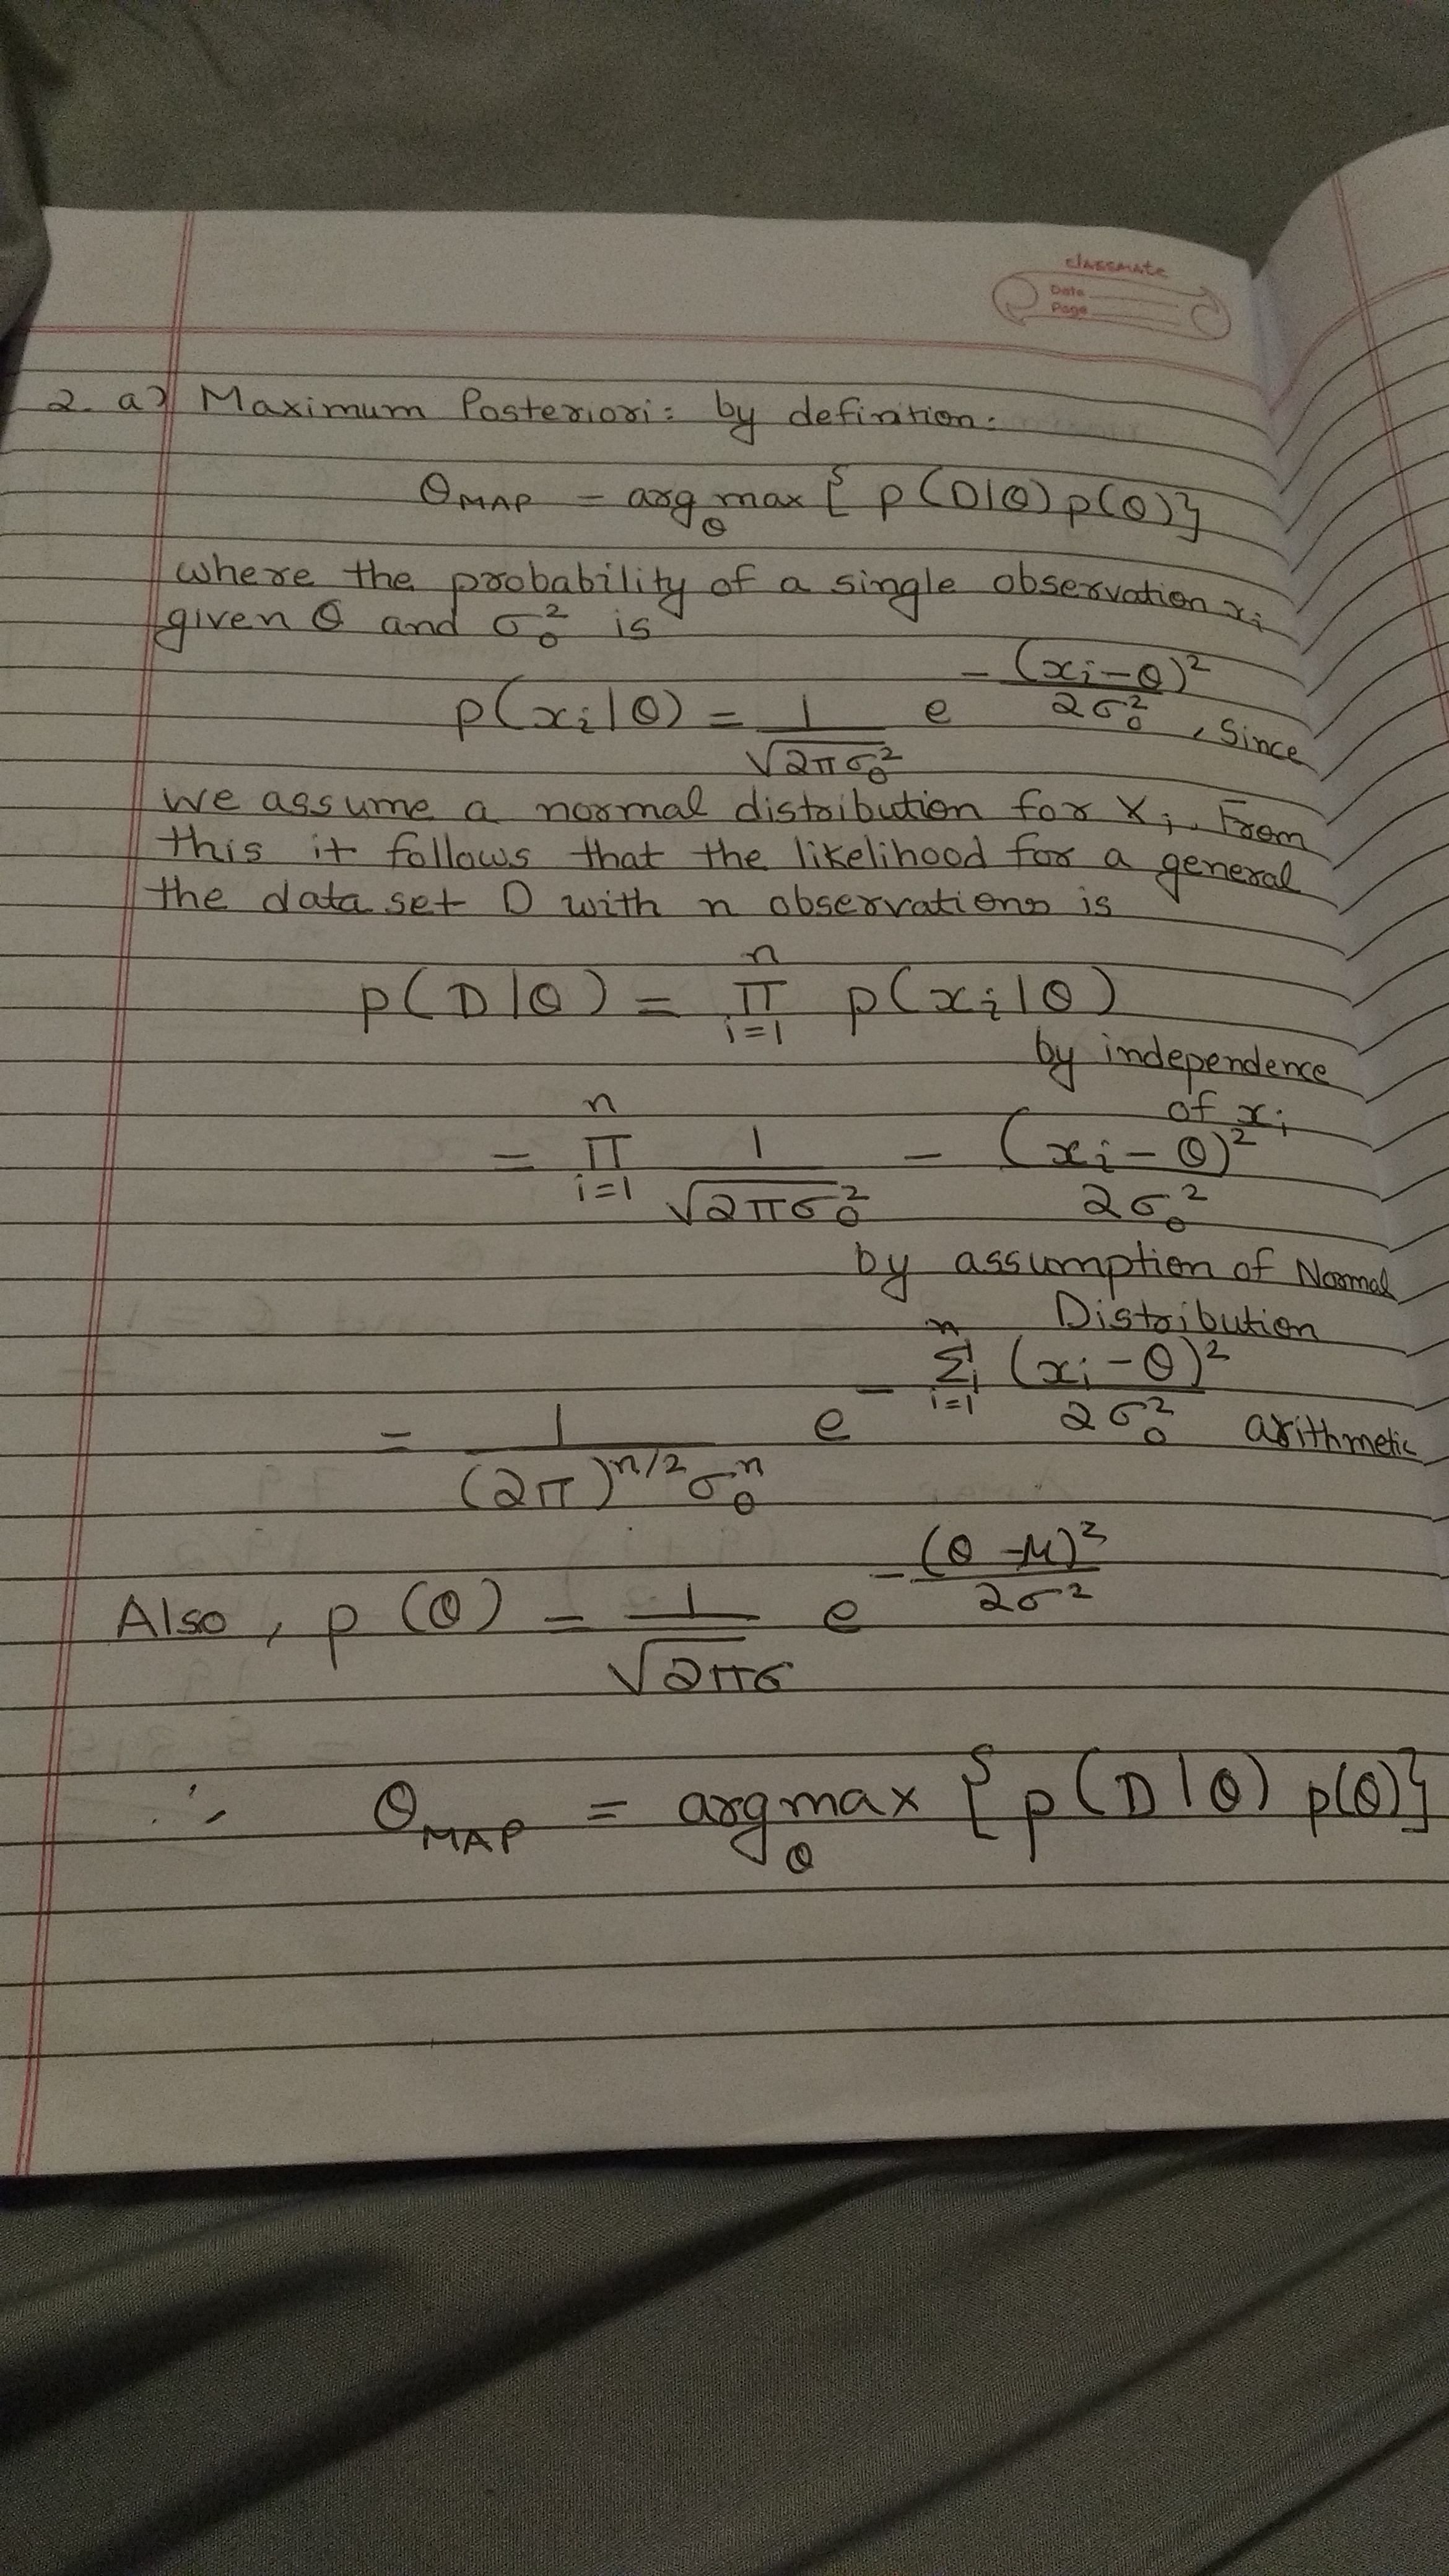 classmate
Date
Page
2. a) Maximum Posteriori: by definition:
θ_MAP = argmax_θ { p(D|θ) p(θ)}
where the probability of a single observation x_i
given θ and σ_0^2 is
p(x_i|θ) = 1/√(2πσ_0^2) e^(-(x_i-θ)^2/2σ_0^2), Since
we assume a normal distribution for X_i. From
this it follows that the likelihood for a general
the data set D with n observations is
p(D|θ) = ∏_{i=1}^{n} p(x_i|θ)
by independence
of x_i
= ∏_{i=1}^{n} 1/√(2πσ_0^2) - (x_i-θ)^2/2σ_0^2
by assumption of Normal
Distribution
= 1/((2π)^(n/2) σ_0^n) e^(-Σ_{i=1}^{n} (x_i-θ)^2/2σ_0^2) arithmetic
Also, p(θ) = 1/√(2πσ) e^(-(θ-μ)^2/2σ^2)
∴ θ_MAP = argmax_θ { p(D|θ) p(θ)}